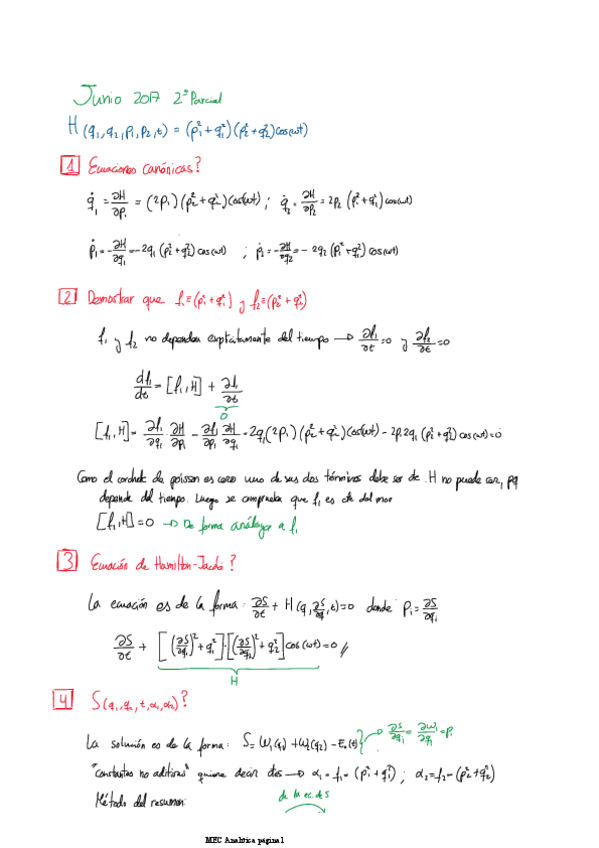 Junio 2017 2º Parcial
H(q₁,q₂,p₁,p₂,t) = (p₁²+q₁²)(p₂²+q₂²)cos(wt)
1 Ecuaciones canónicas?
q̇₁ = ∂H/∂p₁ = (2p₁)(p₂²+q₂²)cos(wt) ; q̇₂ = ∂H/∂p₂ = 2p₂(p₁²+q₁²)cos(wt)
ṗ₁ = -∂H/∂q₁ = -2q₁(p₂²+q₂²)cos(wt) ; ṗ₂ = -∂H/∂q₂ = -2q₂(p₁²+q₁²)cos(wt)
2 Demostrar que f₁≡(p₁²+q₁²) y f₂≡(p₂²+q₂²)
f₁ y f₂ no dependen explícitamente del tiempo → ∂f₁/∂t=0 y ∂f₂/∂t=0
df₁/dt = [f₁,H] + ∂f₁/∂t
0
[f₁,H] = ∂f₁/∂q₁ ∂H/∂p₁ - ∂f₁/∂p₁ ∂H/∂q₁ = 2q₁(2p₁)(p₂²+q₂²)cos(wt) - 2p₁2q₁(p₂²+q₂²)cos(wt)=0
Como el corchete de poisson es cero uno de sus dos términos debe ser cte. H no puede ser, pq
depende del tiempo. Luego se comprueba que f₁ es cte del mov
[f₂,H]=0 → De forma análoga a f₁
3 Ecuación de Hamilton-Jacobi?
La ecuación es de la forma: ∂S/∂t + H(q,∂S/∂q,t)=0 donde pᵢ=∂S/∂qᵢ
∂S/∂t + [(∂S/∂q₁)²+q₁²]·[(∂S/∂q₂)²+q₂²]cos(wt)=0 //
H
4 S(q₁,q₂,t,α₁,α₂)?
La solución es de la forma: S=W₁(q₁)+W₂(q₂)-E₀(t) → ∂S/∂q₁ = ∂W₁/∂q₁ = p₁
"constantes no aditivas" quiere decir → α₁=f₁=(p₁²+q₁²) ; α₂=f₂=(p₂²+q₂²)
de la ec. de S
Método del resumen:
MEC Analitica pagina 1